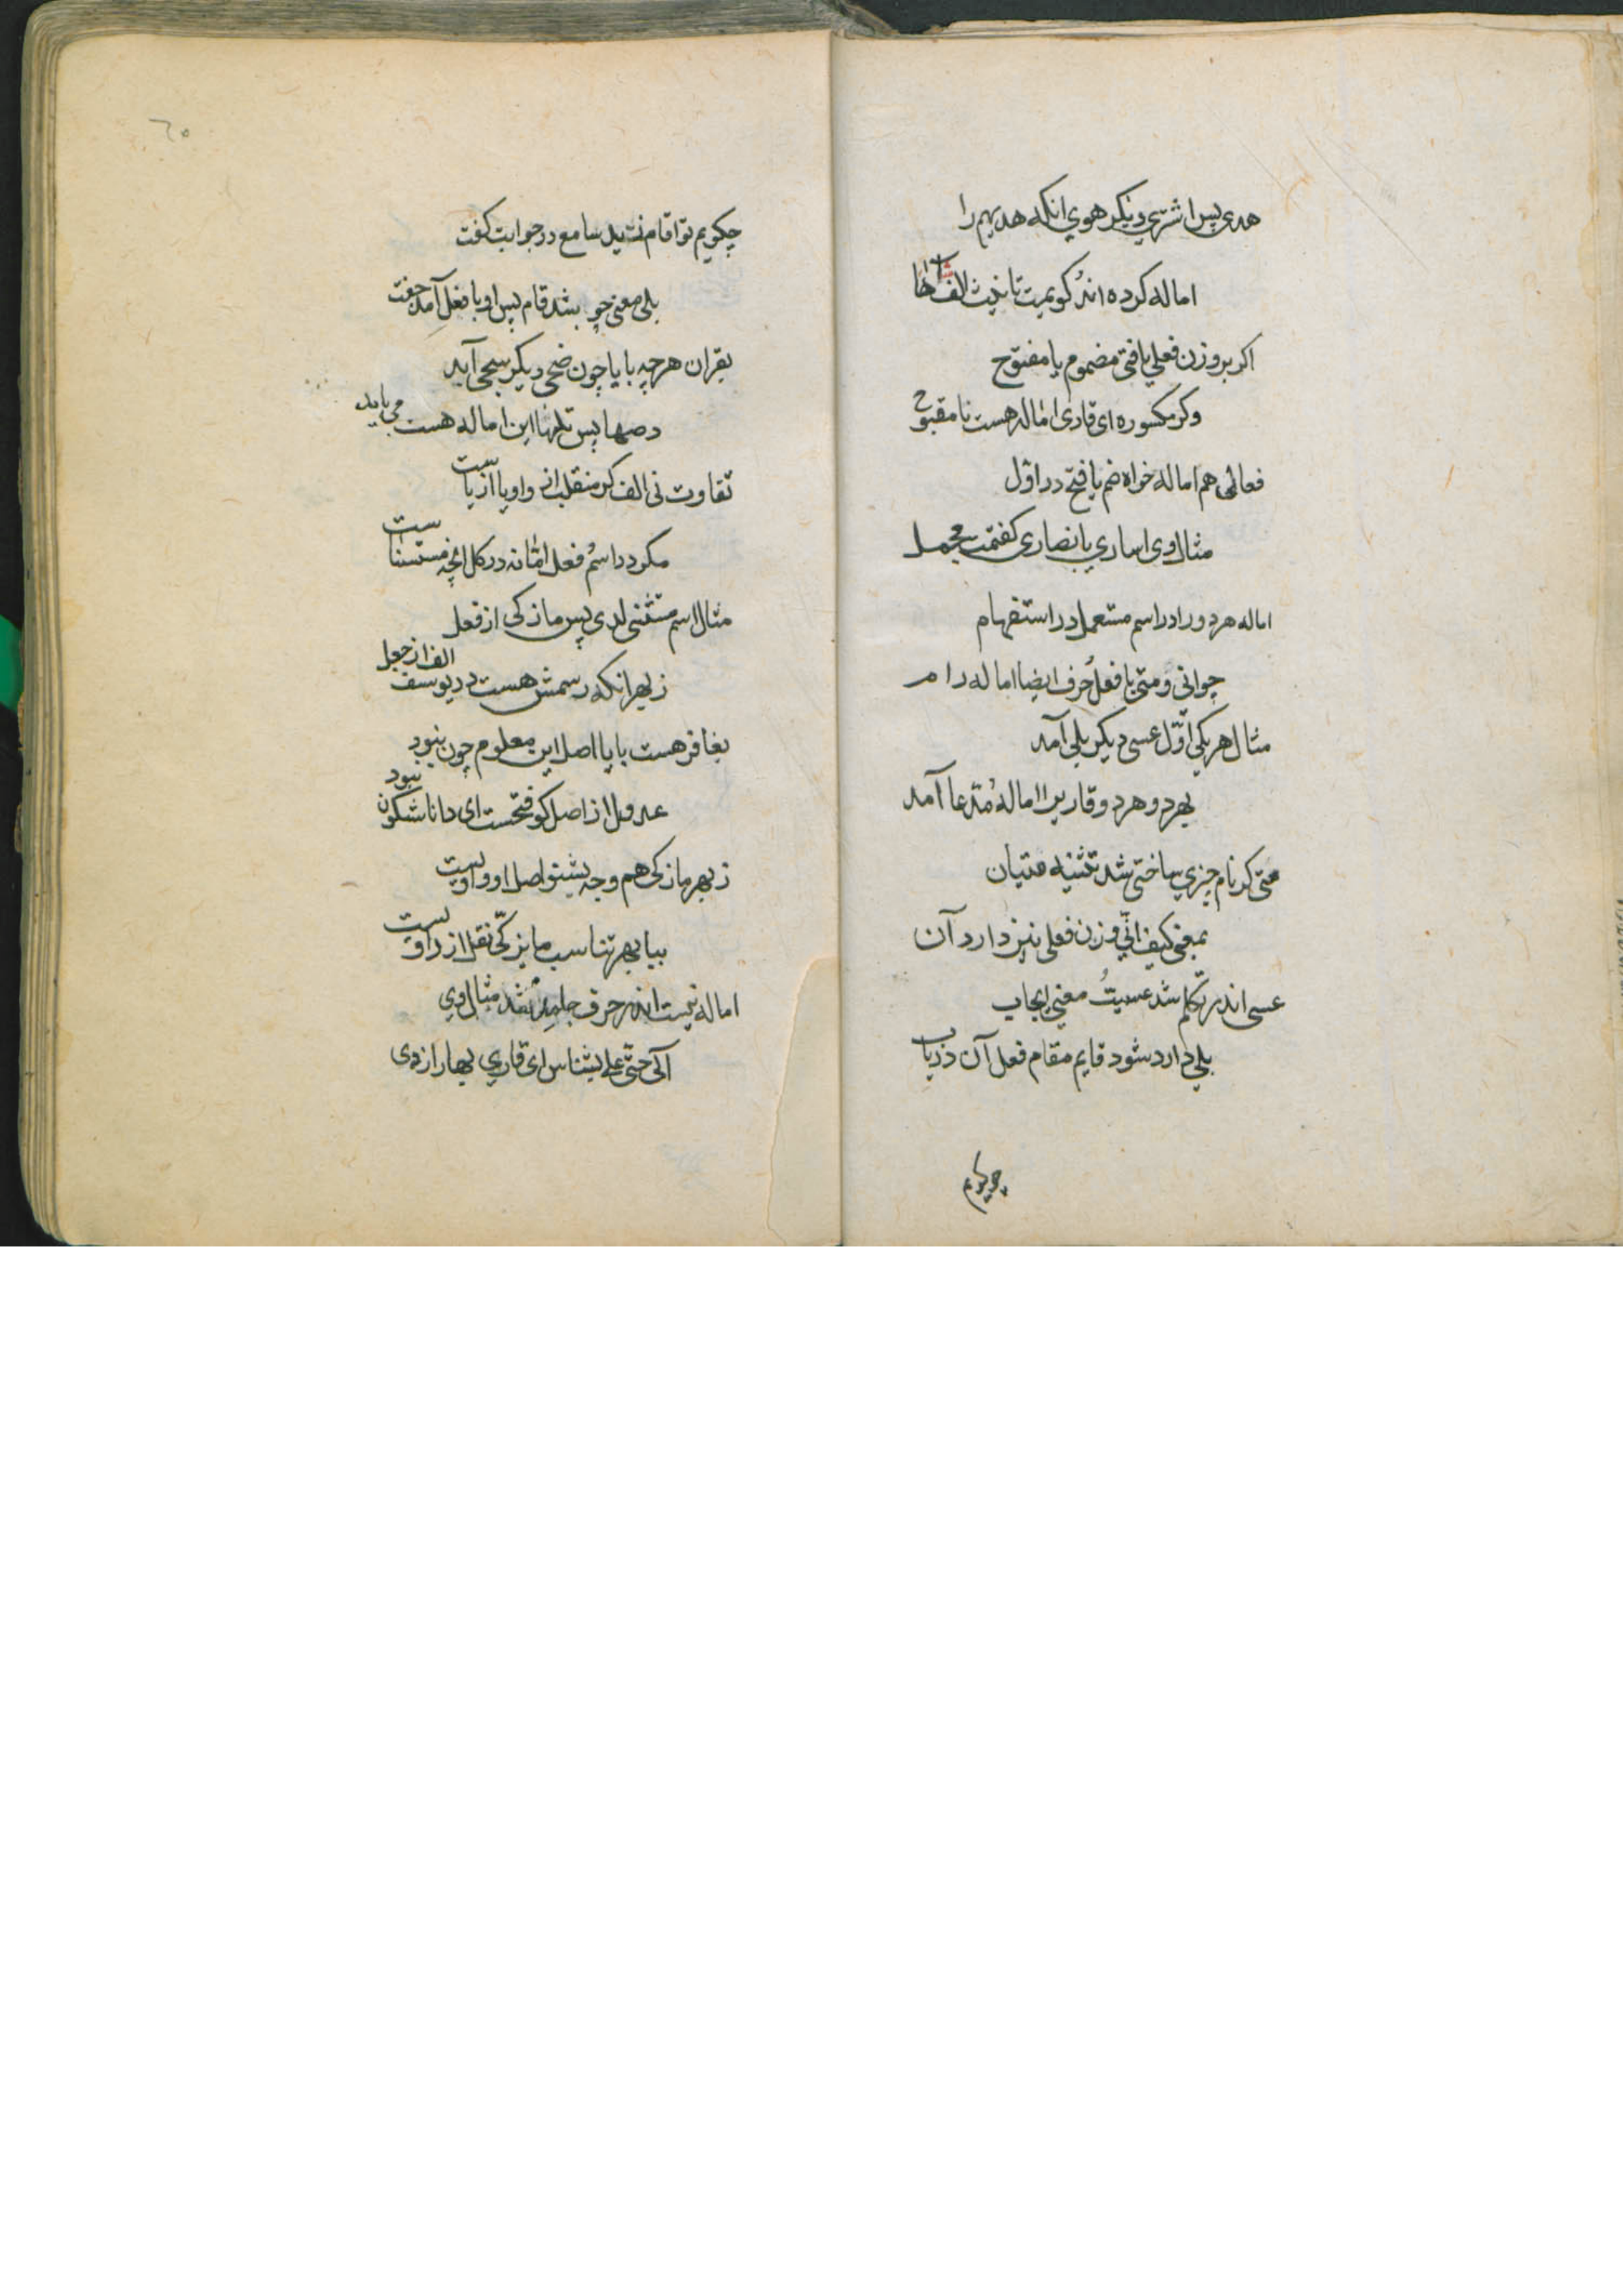 هدی پس اشتری دیگر هوی انکه هدیهم را
اماله کرده اند کویمت تانیث الف
اکر بر وزن فعلی یافتی مضموم یا مفتوح
وکر مکسوره ای قاری اماله هست نا مقبوح
فعالی هم اماله خواه ضم یا فتح در اول
مثال وی اساری یا نصاری کفتمت مجمل
اماله هر دو را در اسم مستعمل در استفهام
چو انی و متی با فعل حرف ایضا اماله رام
مثال هر یکی اول عسی دیکر بلی آمد
بهر دو هر دو قاریرا اماله مدعا آمد
متی کر نام چیزی ساختی شد تثنیه متیان
بمعنی کیف انی وزن فعلی نیز دارد آن
عسی اندر تکلم شد عسیت معنی ایجاب
بلی دارد شود قایم مقام فعل آن دریاب
چکویم
٦٥
چکویم تو اقام زید سامع در جوابت کفت
بلی معنی چو بشد قام پس او با فعل آمد جفت
بقران هرچه با یا چون ضحی دیکر سجی آید
دحیها پس تلیها این اماله هست می باید
تفاوت نی الف کر منقلب از واو یا از یاست
مکر در اسم فعل اما نه در کل انچه مستثناست
مثال اسم مستثنی لدی پس ما زکی از فعل
ز بهر انکه رسمش هست در یوسف الف از جعل
بغافر هست با یا اصل این معلوم چون نبود
عدول از اصل کو فتحست ای دانا شکون نبود
ز بهر ما زکی هم وجه بشنو اصل او واویست
بیا بهر تناسب ما یزکی نقل از راویست
اماله نیست اندر حرف جامد شد مثال وی
الی حتی علی بشناس ای قاری بهار از دی